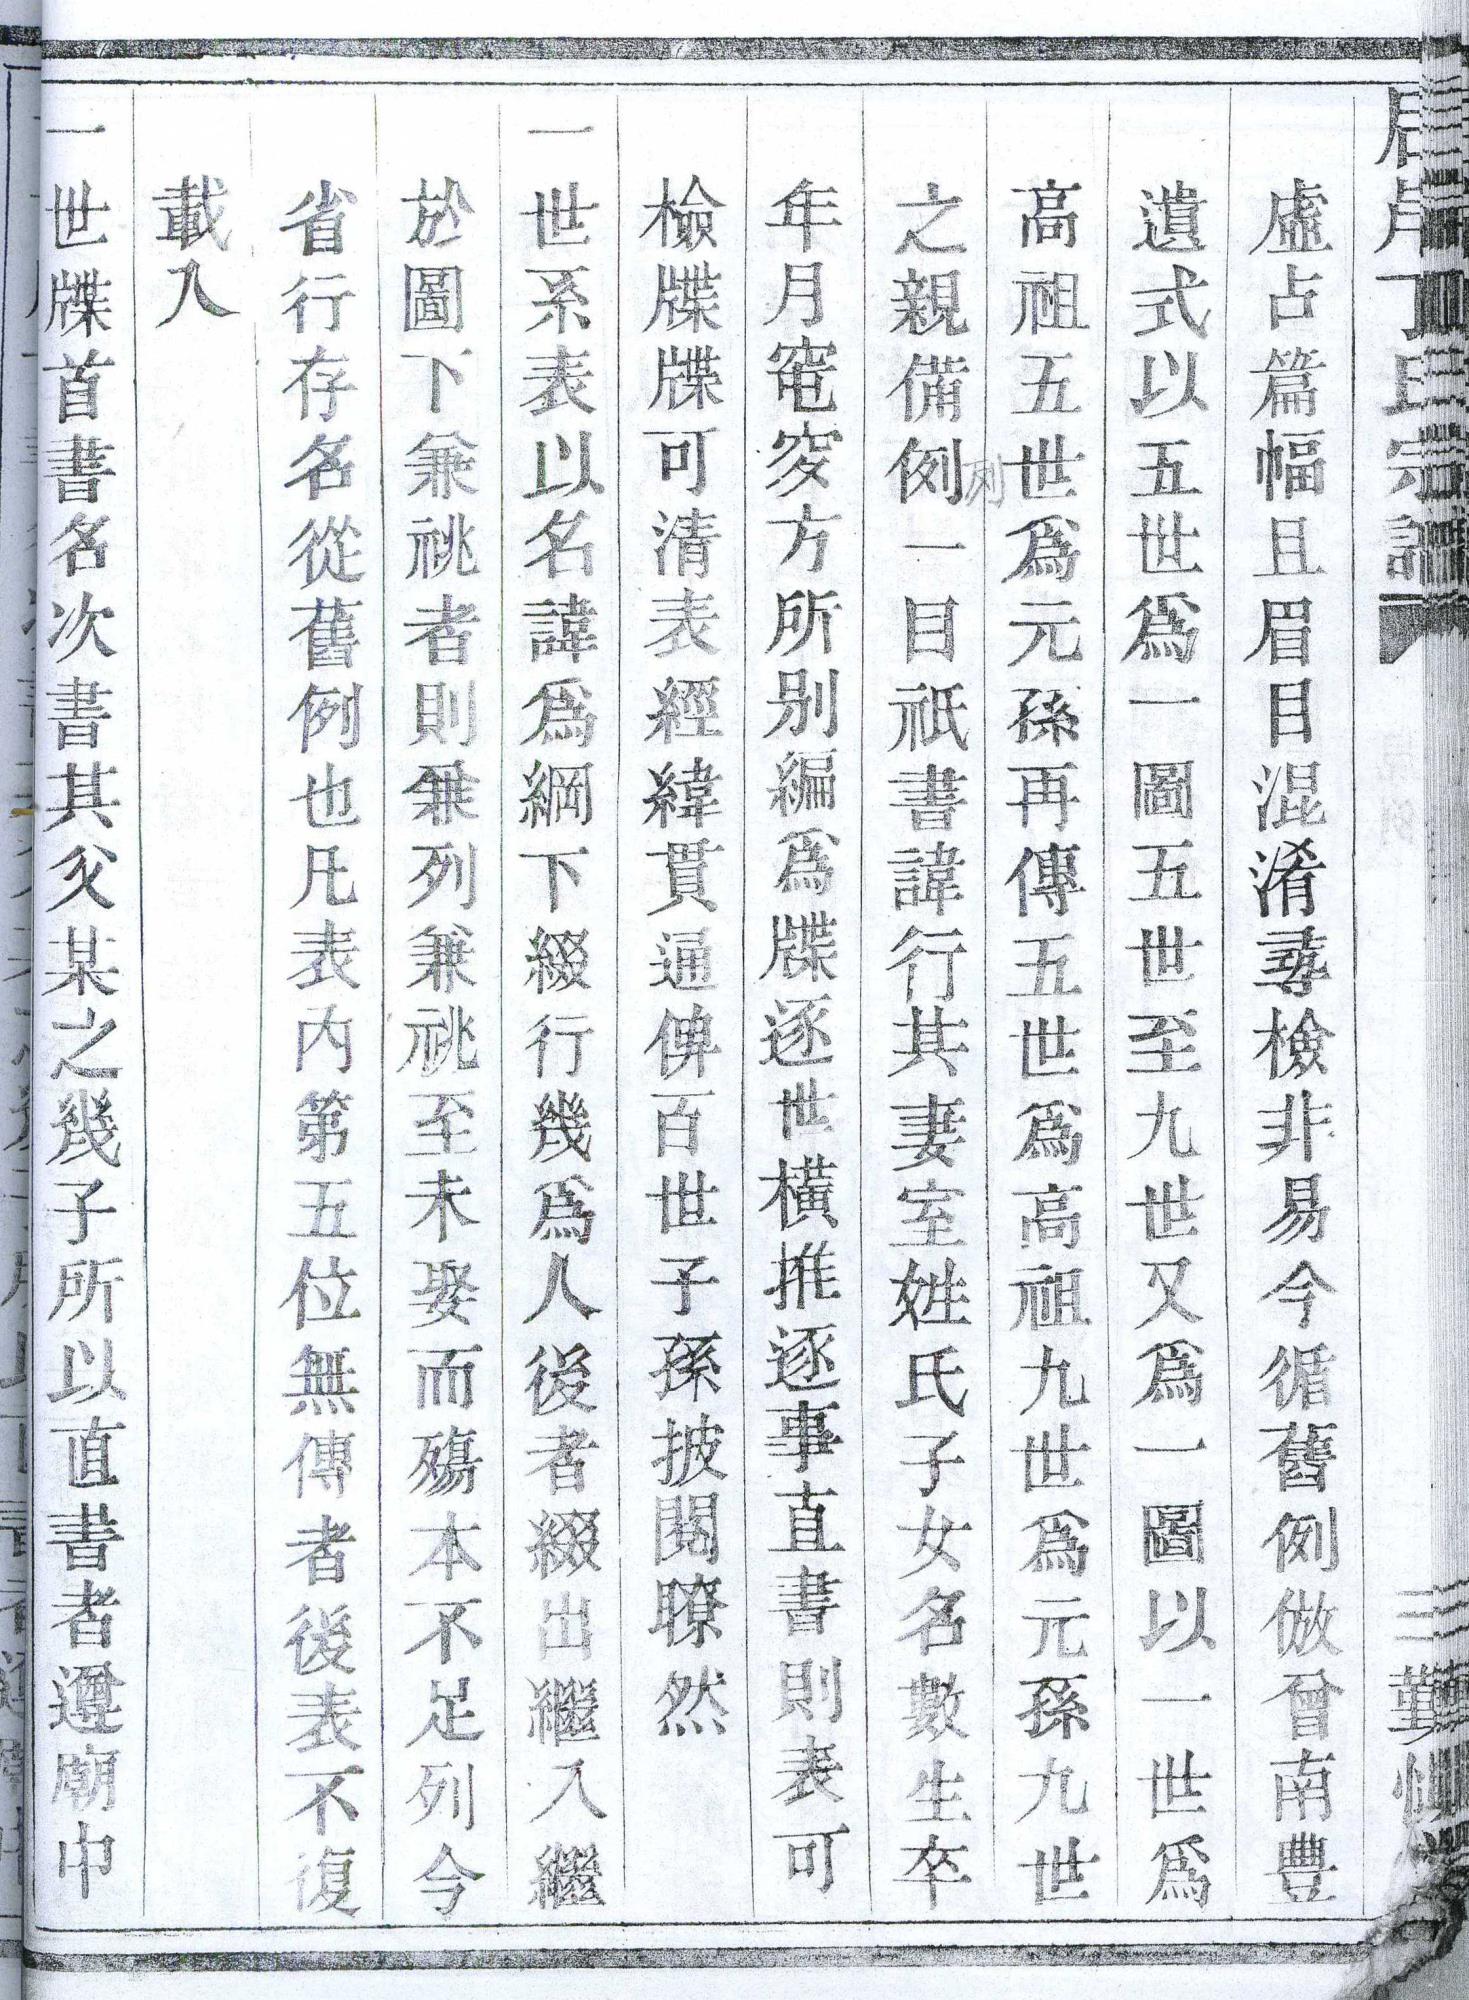 虛占篇幅且眉目混淆尋檢非易今循舊例倣曾南豐
遺式以五世爲一圖五世至九世又爲一圖以一世爲
高祖五世爲元孫再傳五世爲高祖九世爲元孫九世
之親備例一目祇書諱行其妻室姓氏子女名數生卒
列
年月窀穸方所別編爲牒逐世橫推逐事直書則表可
檢牒牒可清表經緯貫通俾百世子孫披閱瞭然
一世系表以名諱爲綱下綴行幾爲人後者綴出繼入繼
於圖下兼祧者則兼列兼祧至未娶而殤本不足列今
省行存名從舊例也凡表內第五位無傳者後表不復
載入
一世牒首書名次書其父某之幾子所以直書者遵廟中
丁氏宗譜
三